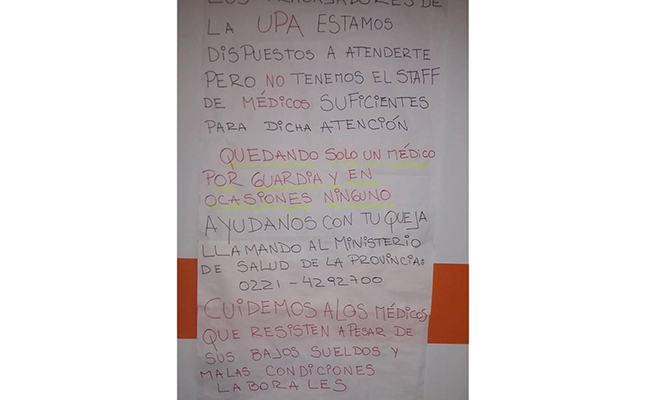 LOS TRABAJADORES DE
LA UPA ESTAMOS
DISPUESTOS A ATENDERTE
PERO NO TENEMOS EL STAFF
DE MÉDICOS SUFICIENTES
PARA DICHA ATENCIÓN
QUEDANDO SOLO UN MÉDICO
POR GUARDIA Y EN
OCASIONES NINGUNO
AYUDANOS CON TU QUEJA
LLAMANDO AL MINISTERIO
DE SALUD DE LA PROVINCIA:
0221-4292700
CUIDEMOS A LOS MÉDICOS
QUE RESISTEN APESAR DE
SUS BAJOS SUELDOS Y
MALAS CONDICIONES
LABORALES